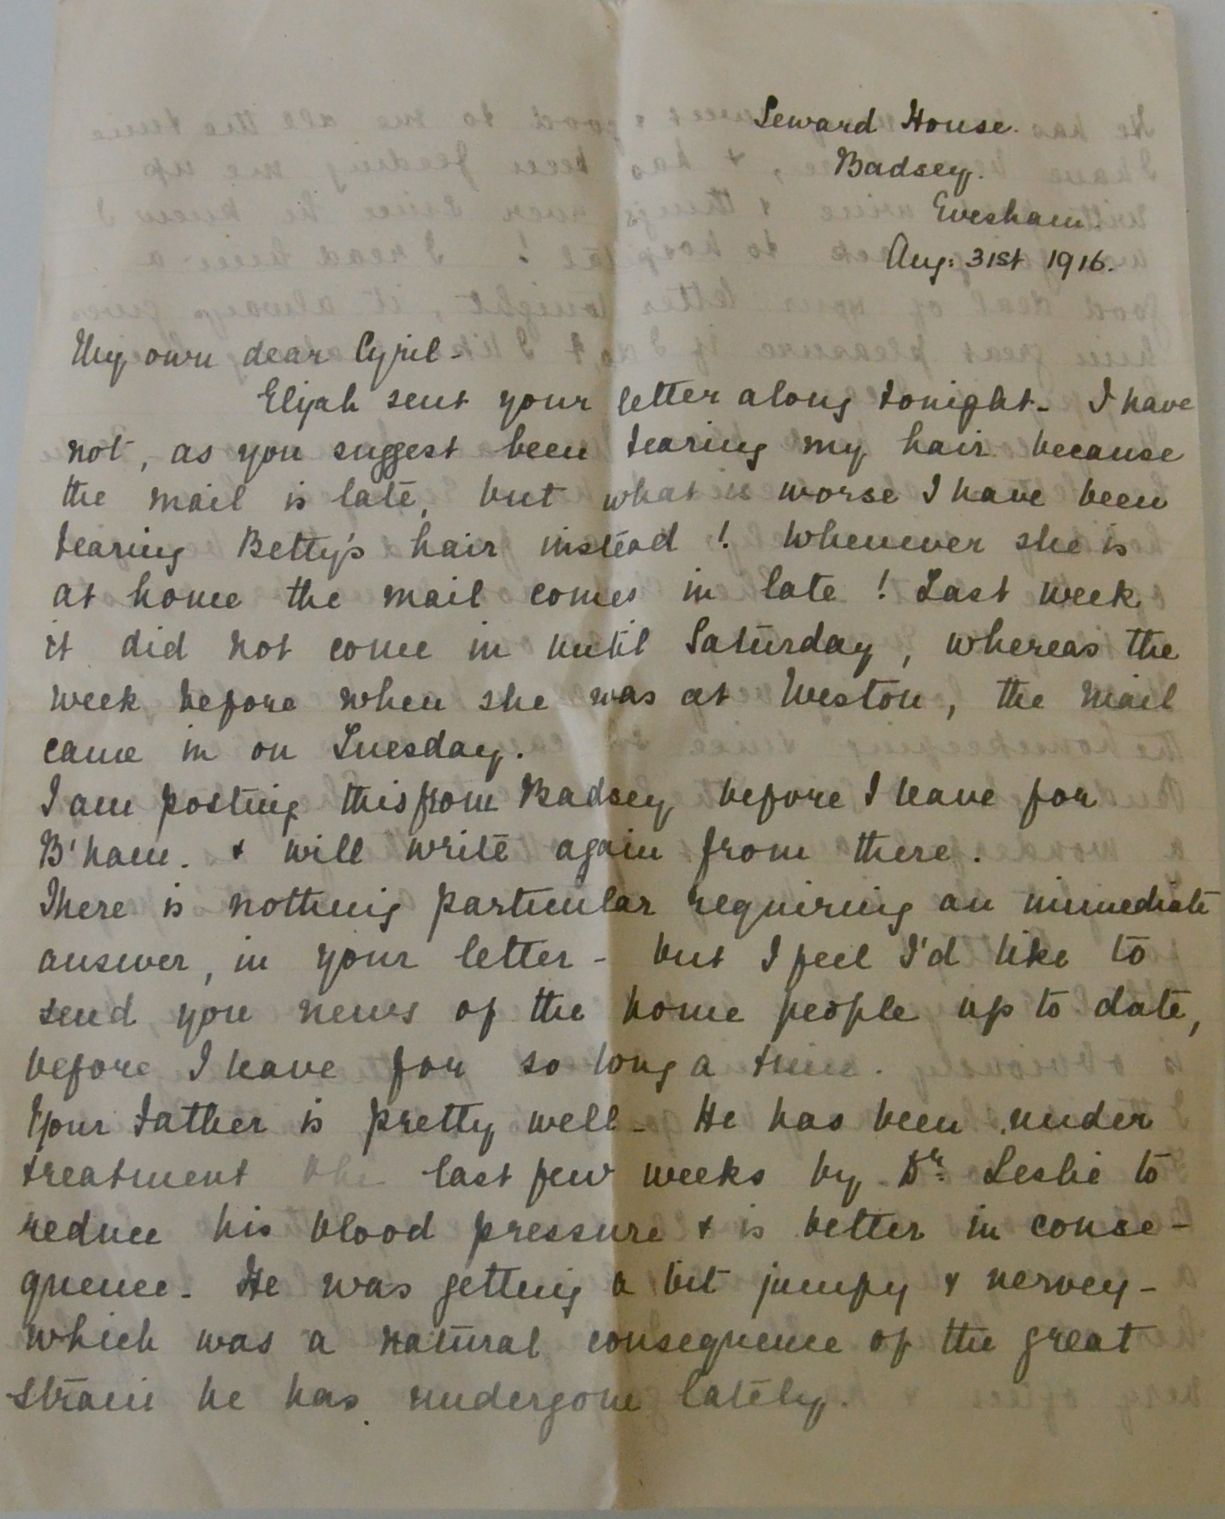 Seward House.
Badsey.
Evesham.
Aug: 31st 1916.
My own dear Cyril -
Elijah sent your letter along tonight - I have
not, as you suggest been tearing my hair because
the mail is late, but what is worse I have been
tearing Betty's hair instead! Whenever she is
at home the mail comes in late! Last week
it did not come in until Saturday, whereas the
week before when she was at Weston, the mail
came in on Tuesday.
I am posting this from Badsey before I leave for
B'ham. & will write again from there.
There is nothing particular requiring an immediate
answer, in your letter - but I feel I'd like to
send you news of the home people up to date,
before I leave for so long a time.
Your Father is pretty well - He has been under
treatment the last few weeks by Dr. Leslie to
reduce his blood pressure & is better in conse-
quence. He was getting a bit jumpy & nervey -
which was a natural consequence of the great
strain he has undergone lately.